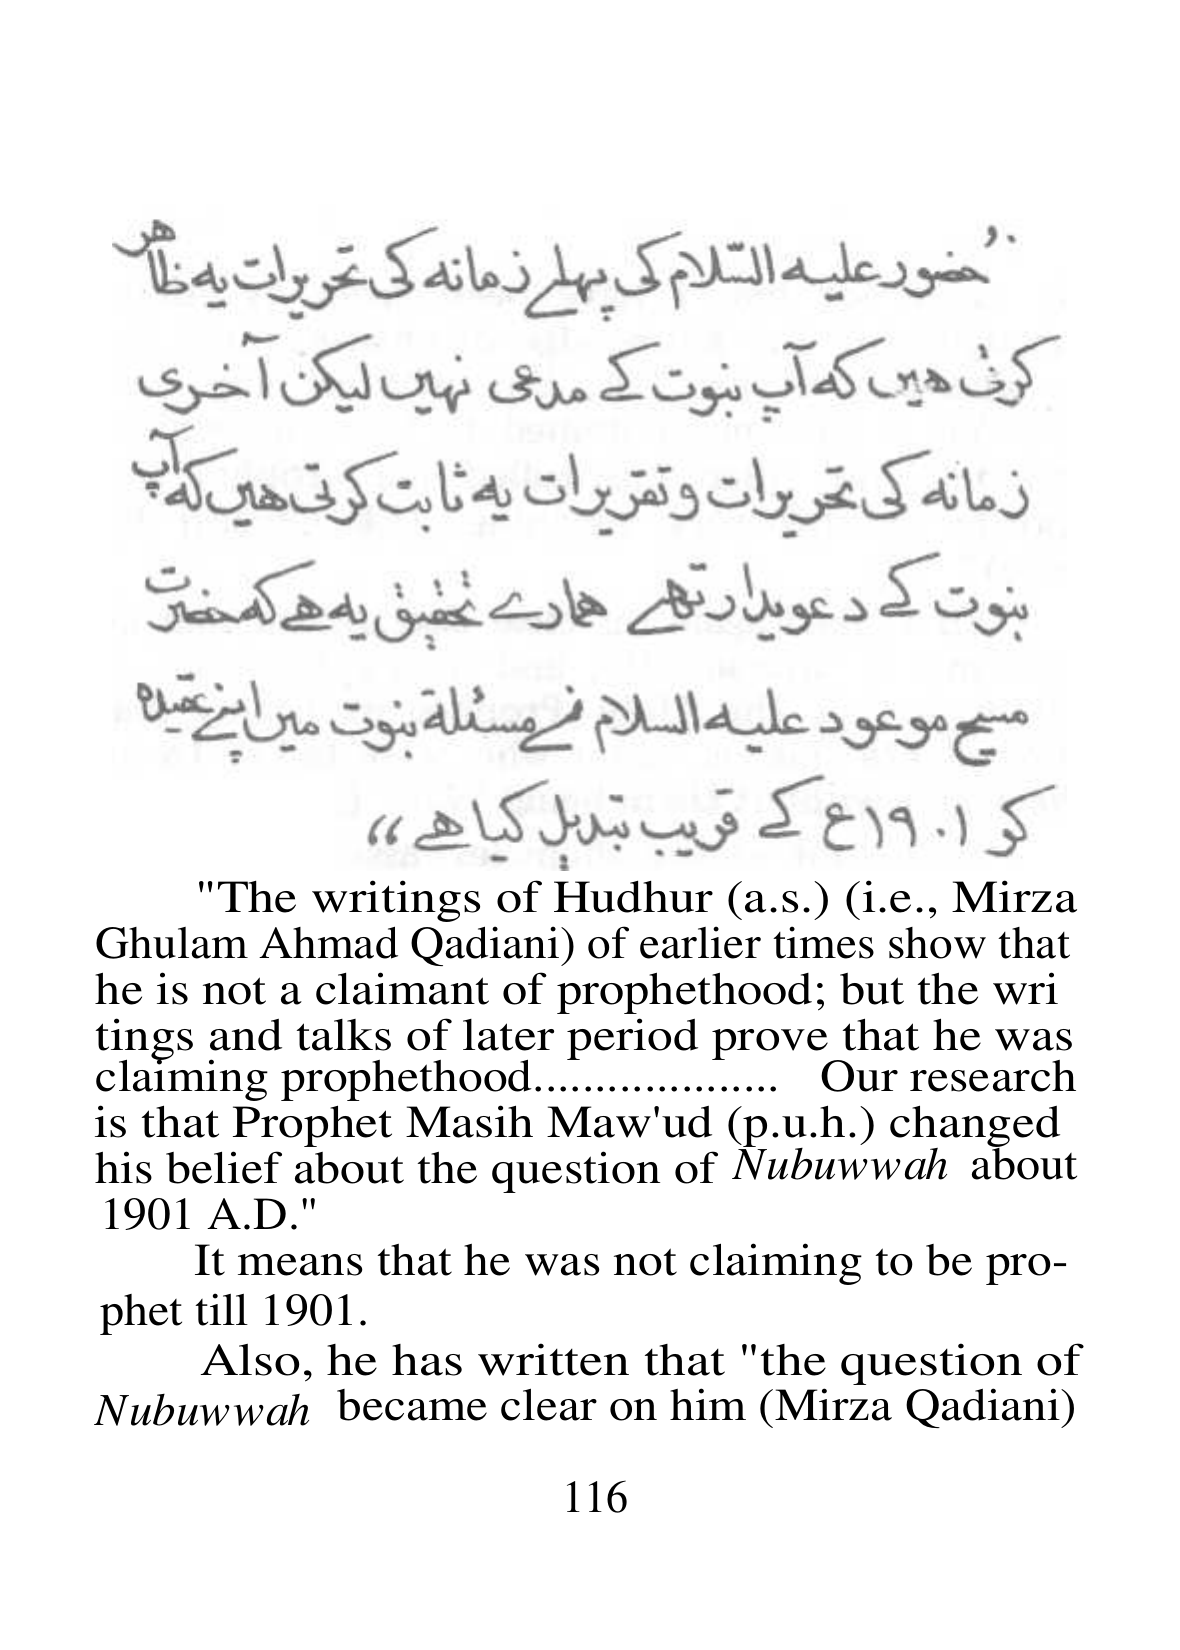 ”حضور علیہ السّلام کی پہلے زمانہ کی تحریرات یہ ظاھر
کرتی ھیں کہ آپ بنوت کے مدعی نہیں لیکن آخری
زمانہ کی تحریرات و تقریرات یہ ثابت کرتی ھیں کہ آپ
بنوت کے دعویدار تھے ھمارے تحقیق یہ ھے کہ حضرت
مسیح موعود علیہ السلام نے مسئلة بنوت میں اپنے عقیدہ
کو ۱۹۰۱ع کے قریب تبدیل کیا ھے“
"The writings of Hudhur (a.s.) (i.e., Mirza
Ghulam Ahmad Qadiani) of earlier times show that
he is not a claimant of prophethood; but the wri
tings and talks of later period prove that he was
claiming prophethood.................... Our research
is that Prophet Masih Maw'ud (p.u.h.) changed
his belief about the question of Nubuwwah about
1901 A.D."
It means that he was not claiming to be pro-
phet till 1901.
Also, he has written that "the question of
Nubuwwah became clear on him (Mirza Qadiani)
116